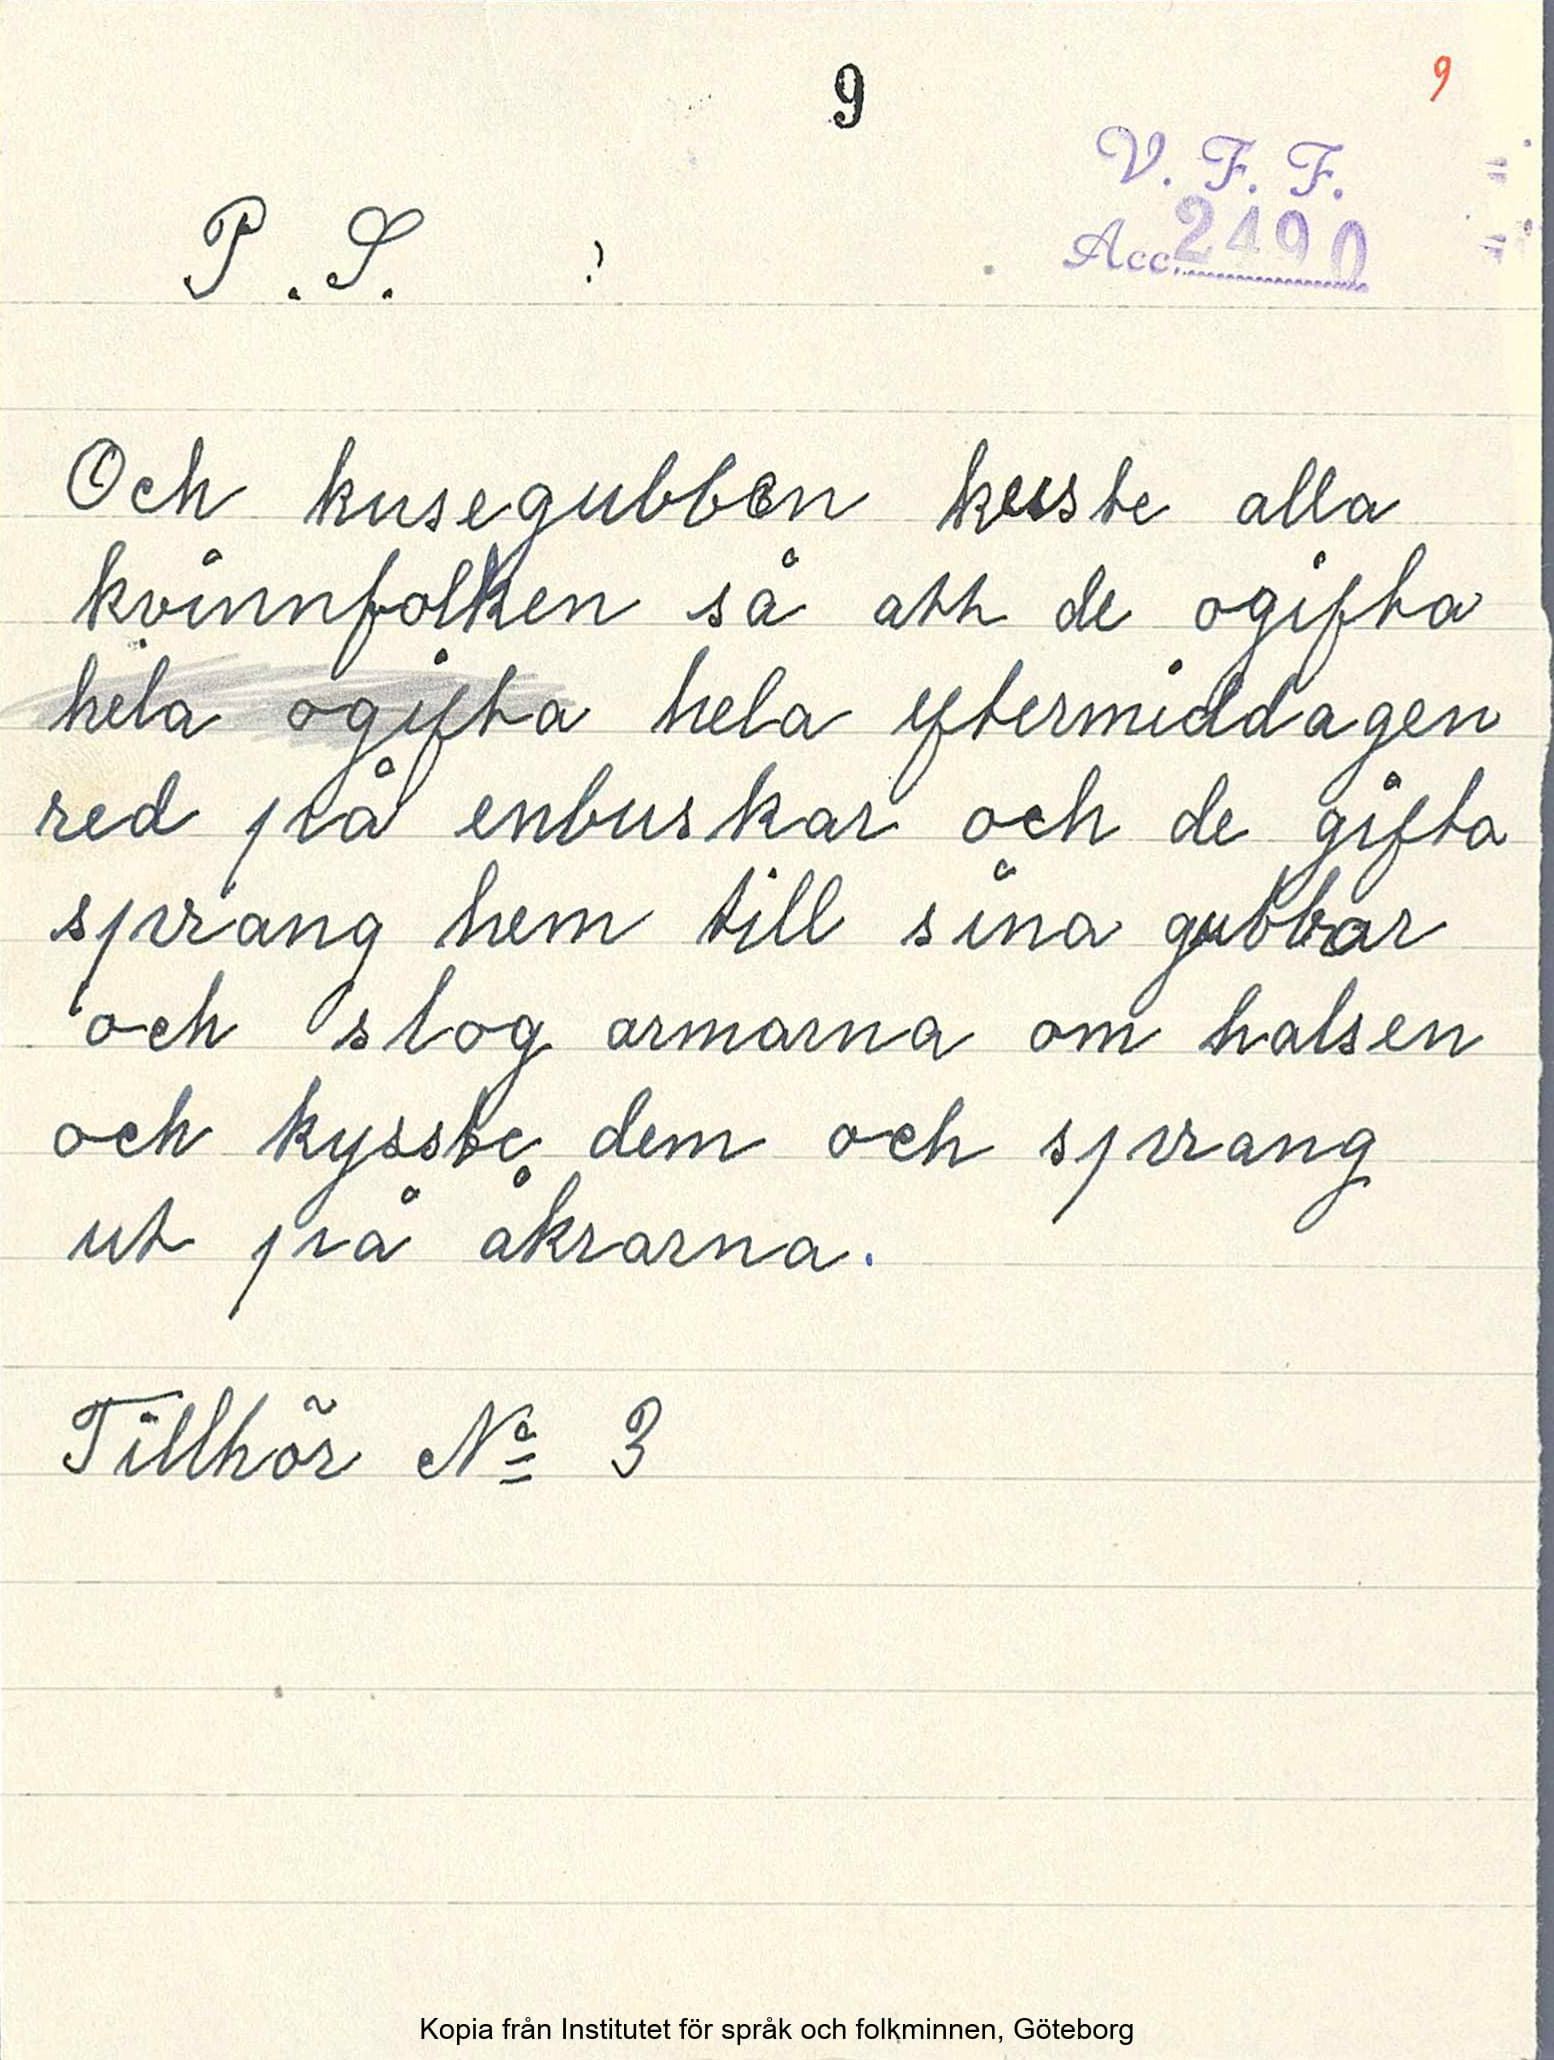 9
9
V. F. F.
Acc. 2490
P.S. !
Och kusegubben kuste alla
kvinnfolken så att de ogifta
hela ogifta hela eftermiddagen
red på enbuskar och de gifta
sprang hem till sina gubbar
och slog armarna om halsen
och kysste dem och sprang
ut på åkrarna.
Tillhör No 3
Kopia från Institutet för språk och folkminnen, Göteborg